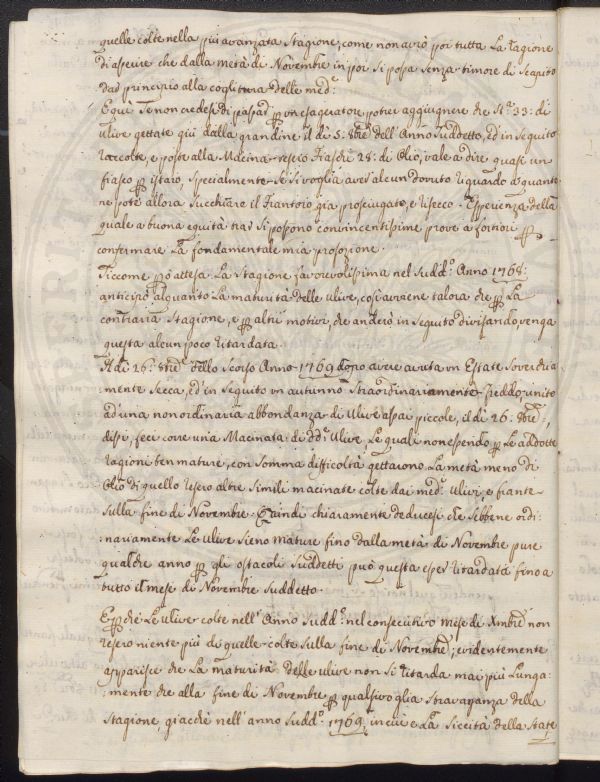 quelle colte nella più avanzata Stagione, come non avrò poi tutta La ragione
di asserire che dalla metà di Novembre in poi si possa senza timore di Scapito
dar principio alla coglitura delle med:e
E qui Se non credessi di passar p un esageratore potrei aggiugnere che St.a 33: di
ulive gettate giù dalla grandine il dì 5: 9bre dell'Anno suddetto, ed in Seguito
raccolte, e poste alla Macina resero Fiaschi 24: di Olio, vale a dire quasi un
fiasco p istaio, specialmente Se si voglia aver alcun dovuto riguardo a quanto
ne potè allora Succhiare il Frantoio già prosciugato, e risecco. Esperienza dalla
quale a buona equità trar si possono convincentissime prove a fortiori p
confermare La fondamentale mia proposizione.
Siccome però attesa La Stagione favorevolissima nel Sudd.o Anno 1768:
anticipò alquanto La maturità delle ulive, così avviene talora che p La
contraria Stagione, e p altri motivi, che anderò in Seguito divisando, venga
questa alcun poco ritardata.
A dì 26: 8bre dello Scorso Anno 1769 dopo avere avuta un Estate Soverchia
mente Secca, ed in Seguito un autunno Straordinariamente freddo, unito
ad una non ordinaria abbondanza di Ulive assai piccole, il dì 26. 8bre,
dissi, feci corre una Macinata di dd.e Ulive Le quali non essendo p Le addotte
ragioni ben mature, con Somma difficoltà gettarono La metà meno di
Olio di quello resero altre Simili macinate colte dai med.i Ulivi, e frante
Sulla fine di Novembre. Quindi chiaramente deducesi che Sebbene ordi:
:nariamente Le Ulive sieno mature fino dalla metà di Novembre pure
qualche anno p gli ostacoli Suddetti può questa esser ritardata fino a
tutto il mese di Novembre Suddetto.
E p che Le ulive colte nell'Anno Sudd.o nel consecutivo mese di Xmbre non
resero niente più di quelle colte Sulla fine di Novembre; evidentemente
apparisce che La maturità delle ulive non Si ritarda mai più Lunga
:mente che alla fine di Novembre p qualsivoglia Stravaganza della
Stagione, giacchè nell'anno Sudd.o 1769, in cui e La Siccità della State